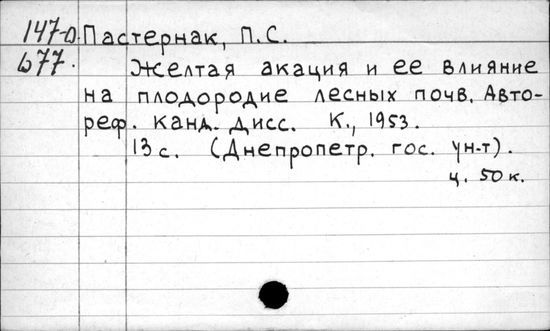 147-D Пастернак, П.С.
677. Желтая акация и ее влияние
на плодородие лесных почв. Авто-
реф. канд. дисс. К., 1953.
13 с. (Днепропетр. гос. ун-т).
ц. 50 к.